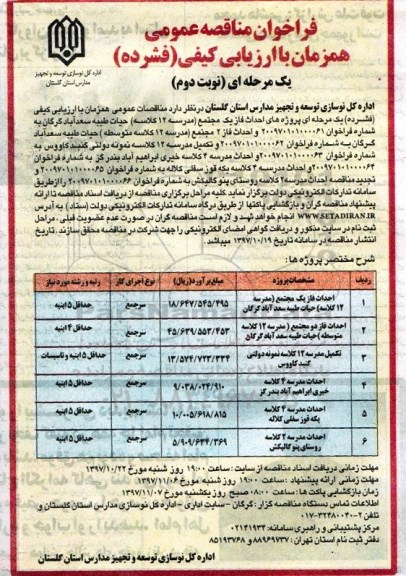 فراخوان مناقصه عمومی
همزمان با ارزیابی کیفی (فشرده)
یک مرحله ای (نوبت دوم)
اداره کل نوسازی توسعه و تجهیز
مدارس استان گلستان
اداره کل نوسازی توسعه و تجهیز مدارس استان گلستان درنظر دارد مناقصات عمومی همزمان با ارزیابی کیفی
(فشرده) یک مرحله ای پروژه های احداث فاز یک مجتمع (مدرسه ۱۲ کلاسه) حیات طیبه سعدآباد گرگان به
شماره فراخوان ۲۰۰۹۷۰۱۰۱۰۰۰۰۶۱ و احداث فاز ۲ مجتمع (مدرسه ۱۲ کلاسه متوسطه) حیات طیبه سعدآباد
گرگان به شماره فراخوان ۲۰۰۹۷۰۱۰۱۰۰۰۰۶۲ و تکمیل مدرسه ۱۲ کلاسه نمونه دولتی گنبد کاووس به
شماره فراخوان ۲۰۰۹۷۰۱۰۱۰۰۰۰۶۳ و احداث مدرسه ۴ کلاسه خیری ابراهیم آباد بندر گز به شماره فراخوان
۲۰۰۹۷۰۱۰۱۰۰۰۰۶۴ و احداث مدرسه ۴ کلاسه یکه قوز سفلی کلاله به شماره فراخوان ۲۰۰۹۷۰۱۰۱۰۰۰۰۶۵ و
تجدید مناقصه احداث مدرسه ۲ کلاسه روستای پنو گالیکش به شماره فراخوان ۲۰۰۹۷۰۱۰۱۰۰۰۰۶۶ را از طریق
سامانه تدارکات الکترونیکی دولت برگزار نماید کلیه مراحل برگزاری مناقصه از دریافت اسناد مناقصه تا ارائه
پیشنهاد مناقصه گران و بازگشایی پاکتها از طریق درگاه سامانه تدارکات الکترونیکی دولت (ستاد) به آدرس
WWW.SETADIRAN.IR انجام خواهد شد و لازم است مناقصه گران در صورت عدم عضویت قبلی، مراحل
ثبت نام در سایت مذکور و دریافت گواهی امضای الکترونیکی را جهت شرکت در مناقصه محقق سازند. تاریخ
انتشار مناقصه در سامانه تاریخ ۱۳۹۷/۱۰/۱۹ میباشد.
شرح مختصر پروژه ها:
ردیف مشخصات پروژه مبلغ برآورد (ریال) نوع اجرای کار رتبه و رشته مورد نیاز
۱ احداث فاز یک مجتمع (مدرسه ۱۲ کلاسه) حیات طیبه سعد آباد گرگان ۱۸/۶۴۷/۵۴۵/۴۹۵ سرجمع حداقل ۵ ابنیه
۲ احداث فاز دو مجتمع (مدرسه ۱۲ کلاسه متوسطه) حیات طیبه سعد آباد گرگان ۴۵/۶۳۹/۵۵۳/۴۵۳ سرجمع حداقل ۴ ابنیه
۳ تکمیل مدرسه ۱۲ کلاسه نمونه دولتی گنبد کاووس ۱۳/۵۷۴/۷۲۳/۳۳۴ سرجمع حداقل ۵ ابنیه و تاسیسات
۴ احداث مدرسه ۴ کلاسه خیری ابراهیم آباد بندر گز ۹/۰۳۸/۰۲۴/۹۱۰ سرجمع حداقل ۵ ابنیه
۵ احداث مدرسه ۴ کلاسه یکه قوز سفلی کلاله ۱۰/۰۰۵/۶۱۸/۸۱۵ سرجمع حداقل ۵ ابنیه
۶ احداث مدرسه ۲ کلاسه روستای پنو گالیکش ۵/۹۰۹/۶۳۴/۳۶۹ سرجمع حداقل ۵ ابنیه
مهلت زمانی دریافت اسناد مناقصه از سایت: ساعت ۱۹:۰۰ روز شنبه مورخ ۱۳۹۷/۱۰/۲۲
مهلت زمانی ارائه پیشنهاد: ساعت ۱۹:۰۰ روز شنبه مورخ ۱۳۹۷/۱۱/۰۶
زمان بازگشایی پاکت ها: ساعت ۰۸:۰۰ صبح روز یکشنبه مورخ ۱۳۹۷/۱۱/۰۷
اطلاعات تماس دستگاه مناقصه گزار: گرگان - سایت اداری - اداره کل نوسازی مدارس استان گلستان و
تلفن ۲-۰۱۷-۳۲۴۸۰۰۴۰
مرکز پشتیبانی و راهبری سامانه: ۰۲۱۴۱۹۳۴
دفتر ثبت نام استان تهران: ۸۸۹۶۹۷۳۷ و ۸۵۱۹۳۷۶۸
اداره کل نوسازی توسعه و تجهیز مدارس استان گلستان